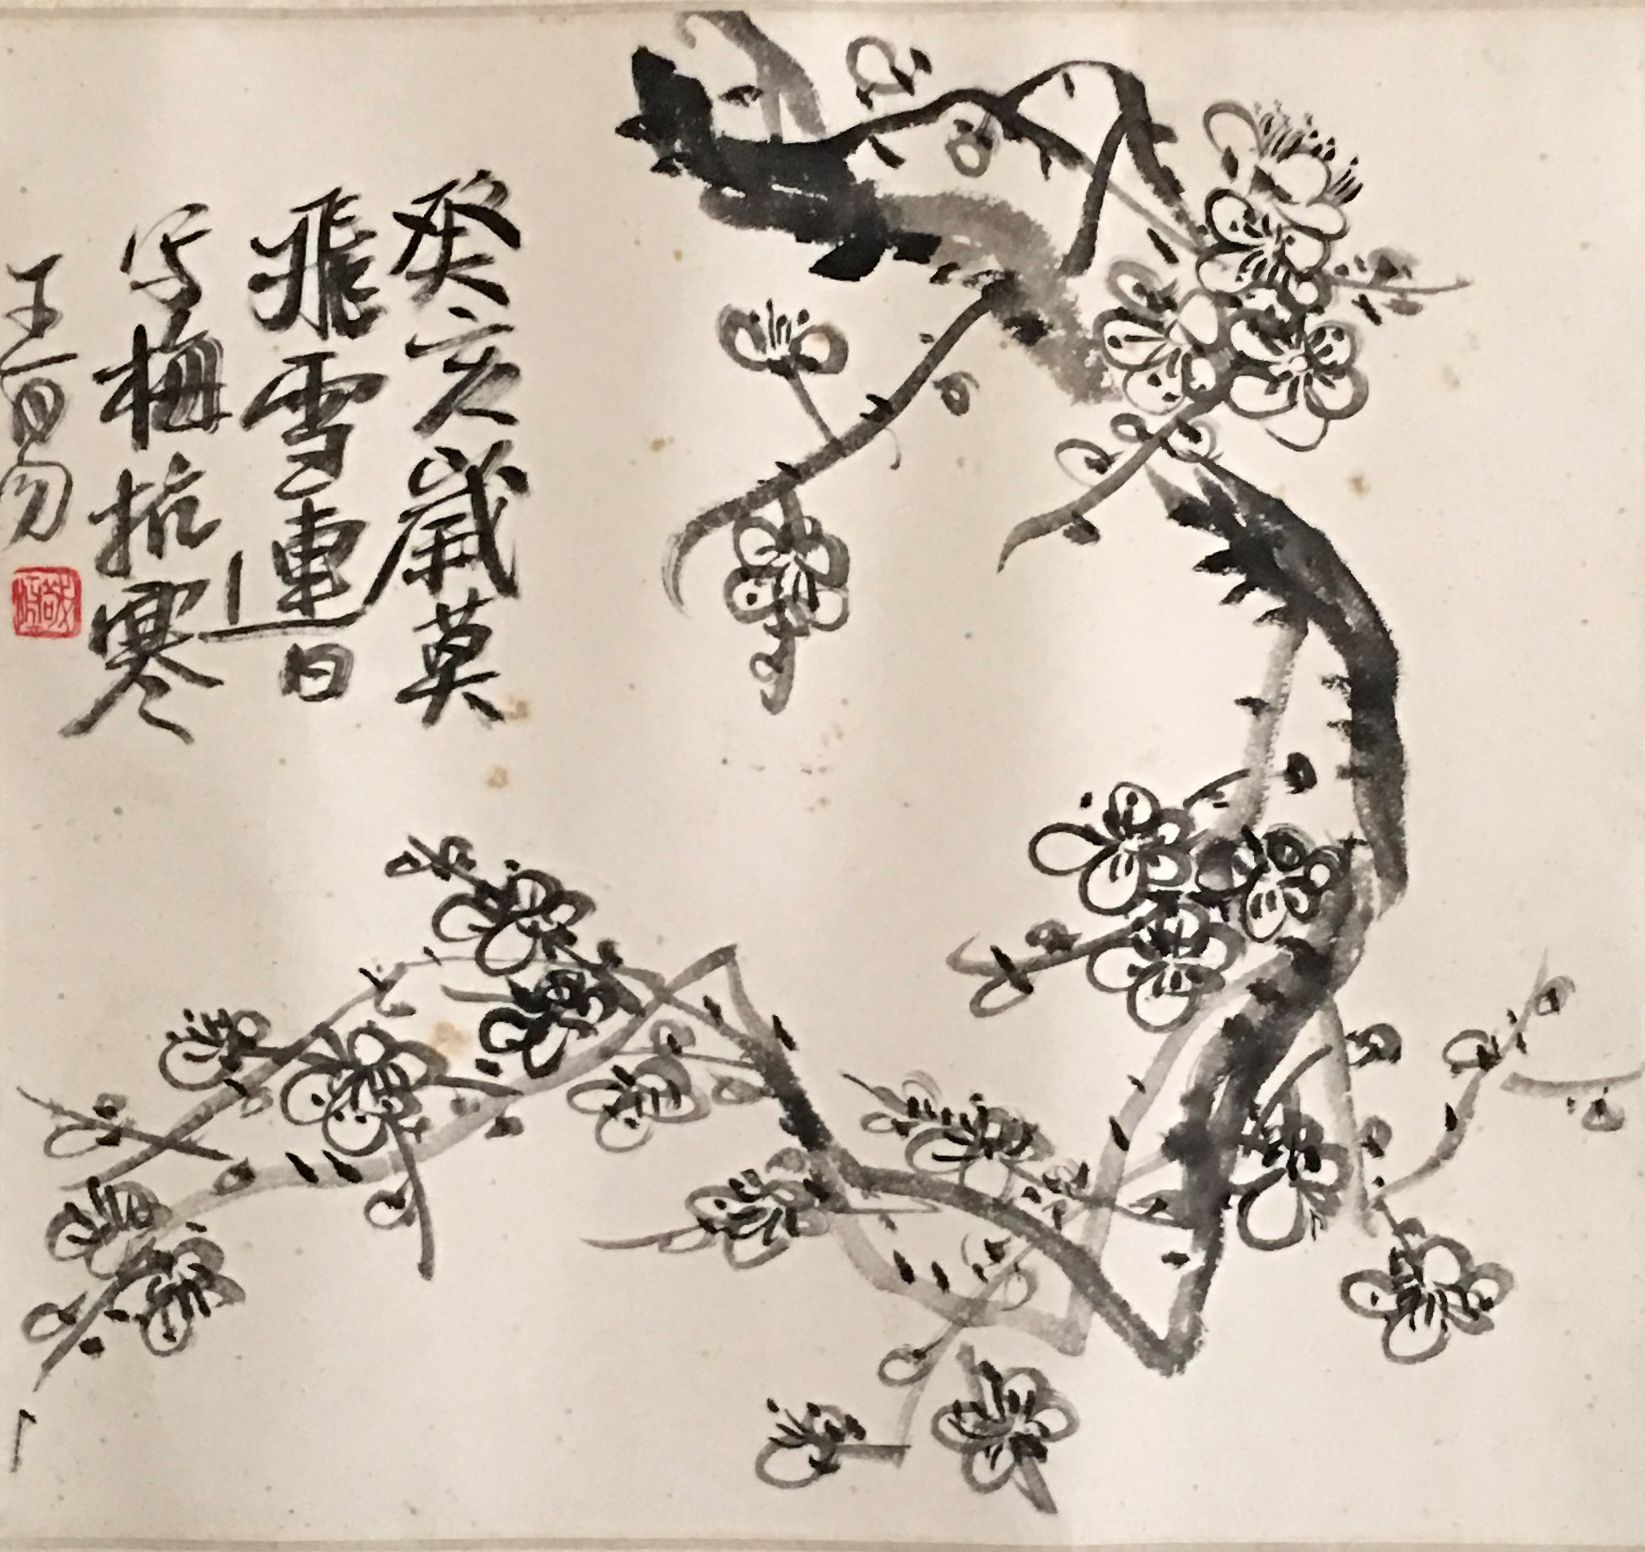 癸亥歲莫
飛雪連日
写梅抗寒
王